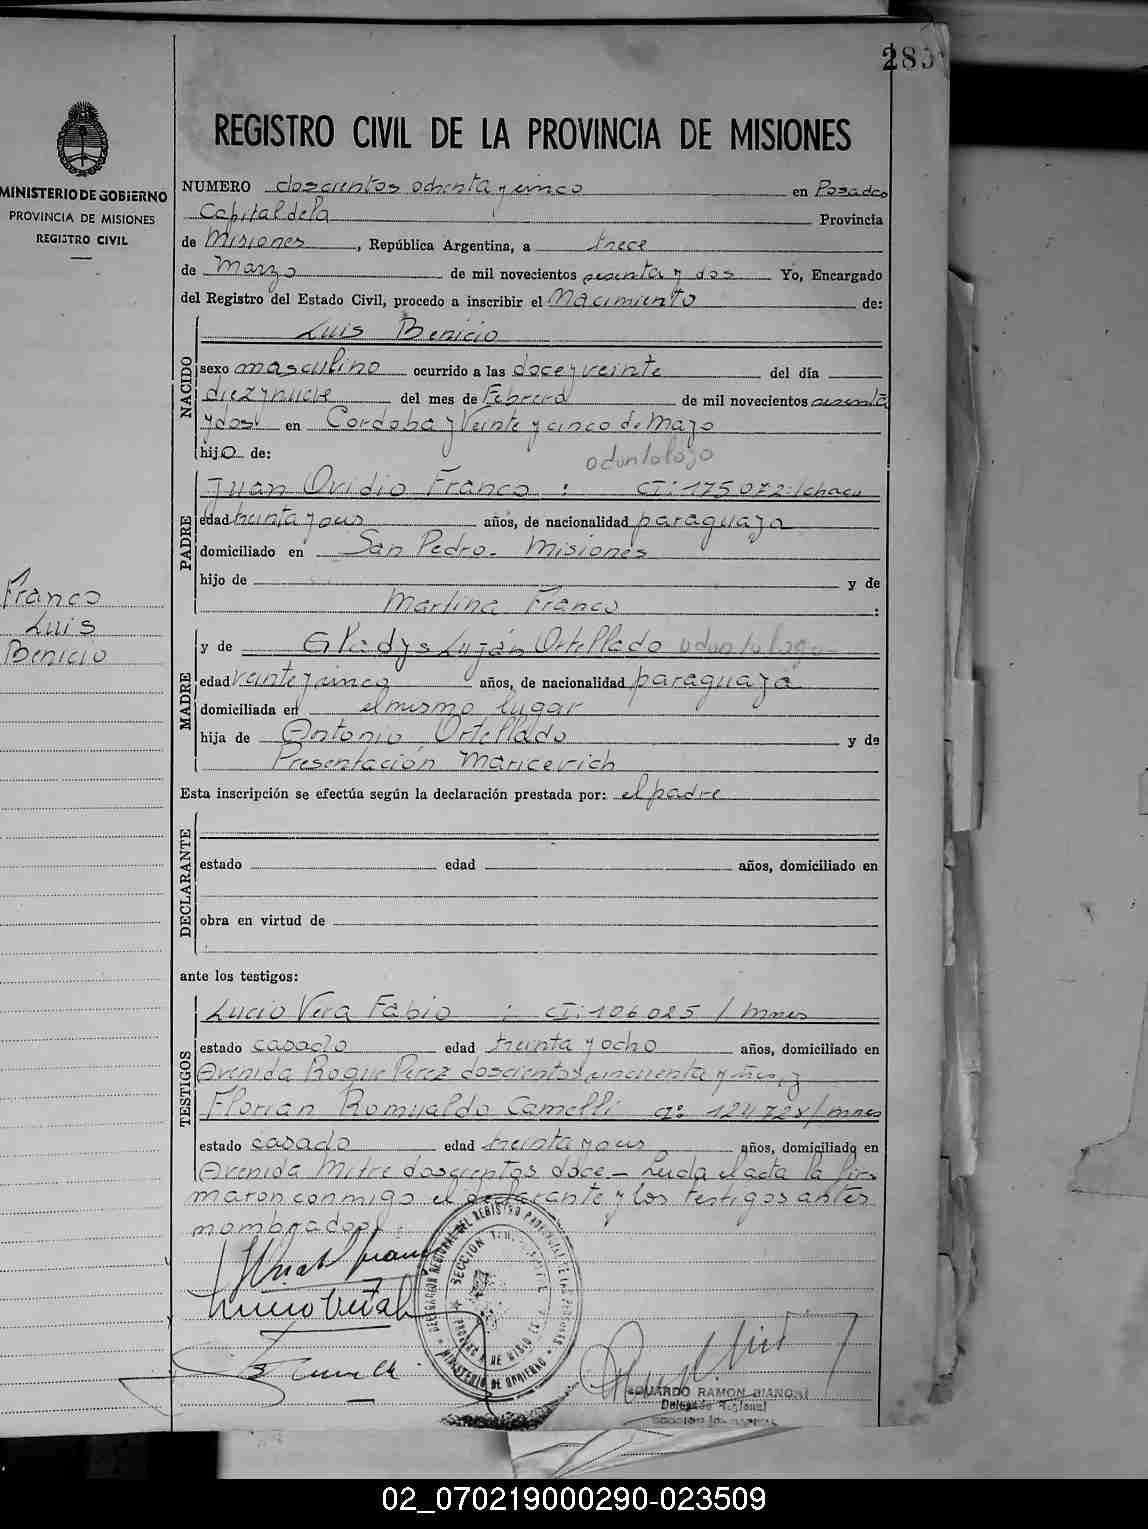 285
REGISTRO CIVIL DE LA PROVINCIA DE MISIONES
MINISTERIO DE GOBIERNO
PROVINCIA DE MISIONES
REGISTRO CIVIL
NUMERO doscientos ochenta y cinco en Posadas
Capital de la Provincia
de Misiones, República Argentina, a trece
de Marzo de mil novecientos sesenta y dos Yo, Encargado
del Registro del Estado Civil, procedo a inscribir el Nacimiento de:
NACIDO
Luis Benicio
sexo masculino ocurrido a las doce y veinte del día
diez y nueve del mes de Febrero de mil novecientos sesenta
y dos en Cordoba y Veinte y cinco de Mayo
hijo de:
odontologo
PADRE
Juan Ovidio Franco : CI: 175072/chaco
edad treinta y años, de nacionalidad paraguaya
domiciliado en San Pedro - Misiones
hijo de y de
Martina Franco :
Franco
Luis
Benicio
MADRE
y de Gladys Luján Ortellado odontologa
edad veinte y cinco años, de nacionalidad paraguaya
domiciliada en el mismo lugar
hija de Antonio Ortellado y de
Presentación Maricevich
Esta inscripción se efectúa según la declaración prestada por: el padre
DECLARANTE
estado edad años, domiciliado en
obra en virtud de
ante los testigos:
TESTIGOS
Lucio Vera Fabio : CI: 106025 / mnes
estado casado edad treinta y ocho años, domiciliado en
Avenida Roque Perez doscientos cincuenta y tres, y
Florian Romualdo Camelli
estado casado edad treinta y años, domiciliado en
Avenida Mitre doscientos doce - Leida el acta la fir
maron conmigo el declarante y los testigos antes
nombrados.
DELEGACION REGIONAL DEL REGISTRO PROVINCIAL DE LAS PERSONAS
SECCION
MINISTERIO DE GOBIERNO
EDUARDO RAMON BIANCHI
Delegado Regional
02_070219000290-023509